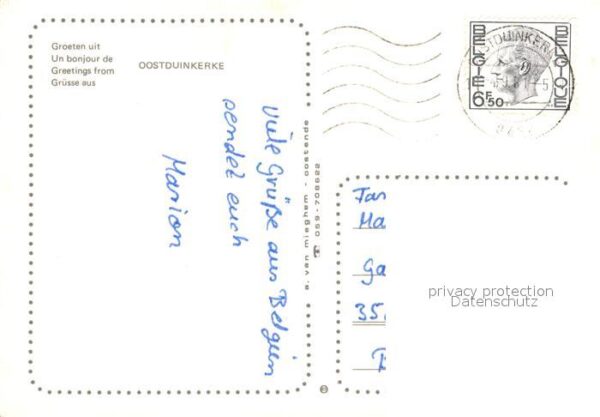 Groeten uit
Un bonjour de
Greetings from
Grüsse aus
OOSTDUINKERKE
Viele Grüße aus Belgien
sendet euch
Marion
e. van mieghem - oostende
☎ 059-708622
BELGIE BELGIQUE
6F50
OOSTDUINKERKE
Fam
Ma
Ga
35.
privacy protection
Datenschutz